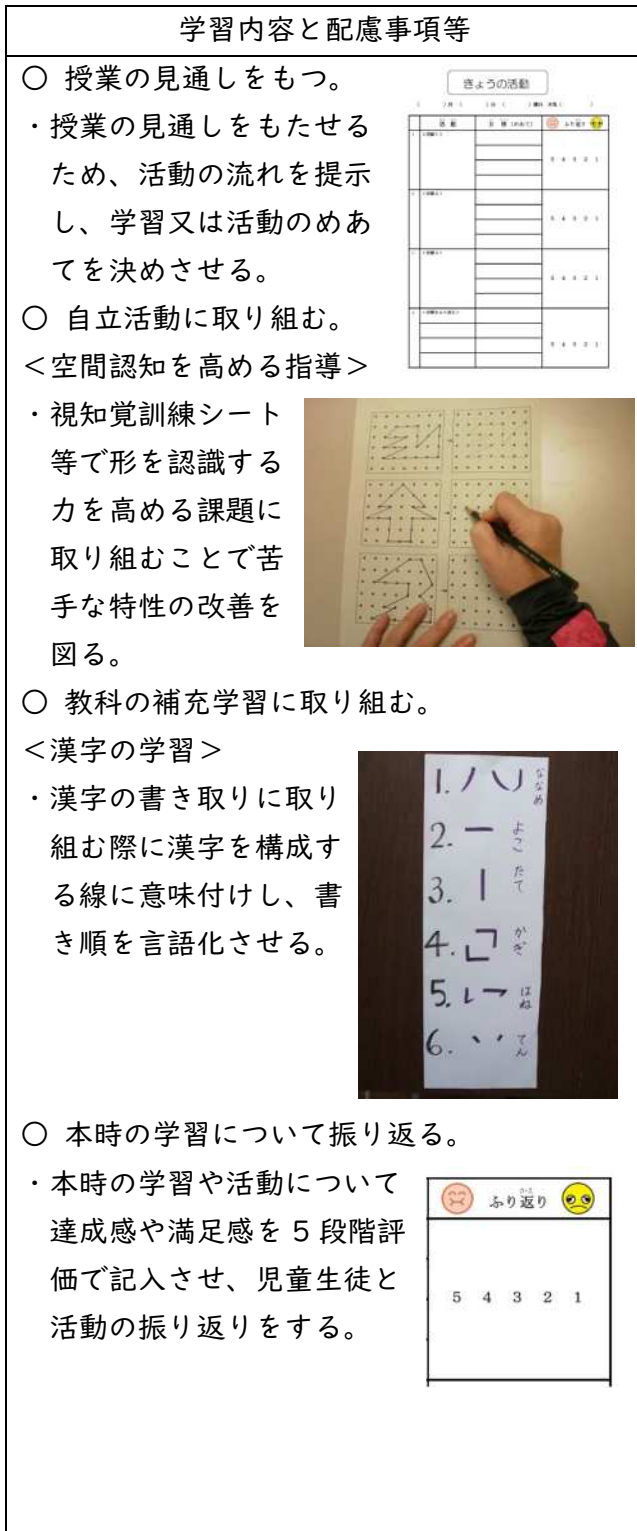 学習内容と配慮事項等
○ 授業の見通しをもつ。
・授業の見通しをもたせる
ため、活動の流れを提示
し、学習又は活動のめあ
てを決めさせる。
きょうの活動
活動 目標（めあて） ふり返り
5 4 3 2 1
5 4 3 2 1
5 4 3 2 1
5 4 3 2 1
○ 自立活動に取り組む。
＜空間認知を高める指導＞
・視知覚訓練シート
等で形を認識する
力を高める課題に
取り組むことで苦
手な特性の改善を
図る。
○ 教科の補充学習に取り組む。
＜漢字の学習＞
・漢字の書き取りに取り
組む際に漢字を構成す
る線に意味付けし、書
き順を言語化させる。
1. ななめ
2. よこ
3. たて
4. かぎ
5. はね
6. てん
○ 本時の学習について振り返る。
・本時の学習や活動について
達成感や満足感を５段階評
価で記入させ、児童生徒と
活動の振り返りをする。
ふり返り
5 4 3 2 1